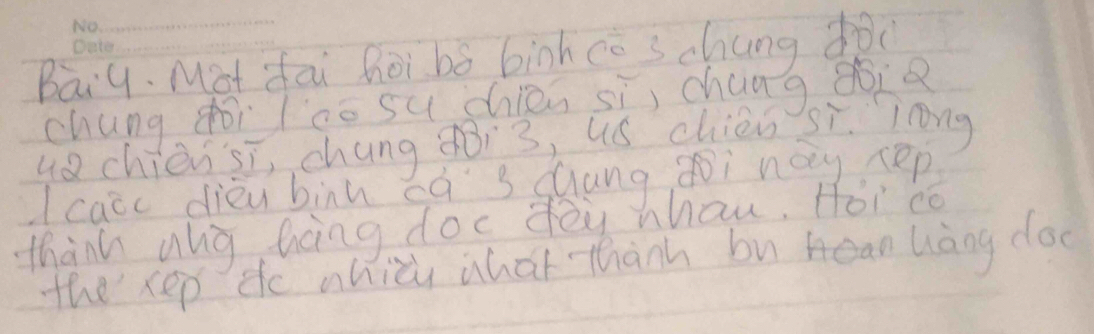 No
Date
Bài 4. Một đại hội bộ binh có 3 chung đội
chung đội 1 có 54 chiến sĩ, chung đội 2
42 chiến sĩ, chung đội 3, 48 chiến sĩ. Trong
1 cacc diều binh cả 3 chung đội này xếp
thành nhg hàng dọc đều nhau. Hỏi có
thể xếp đc nhiều nhất thành bn hàng dọc